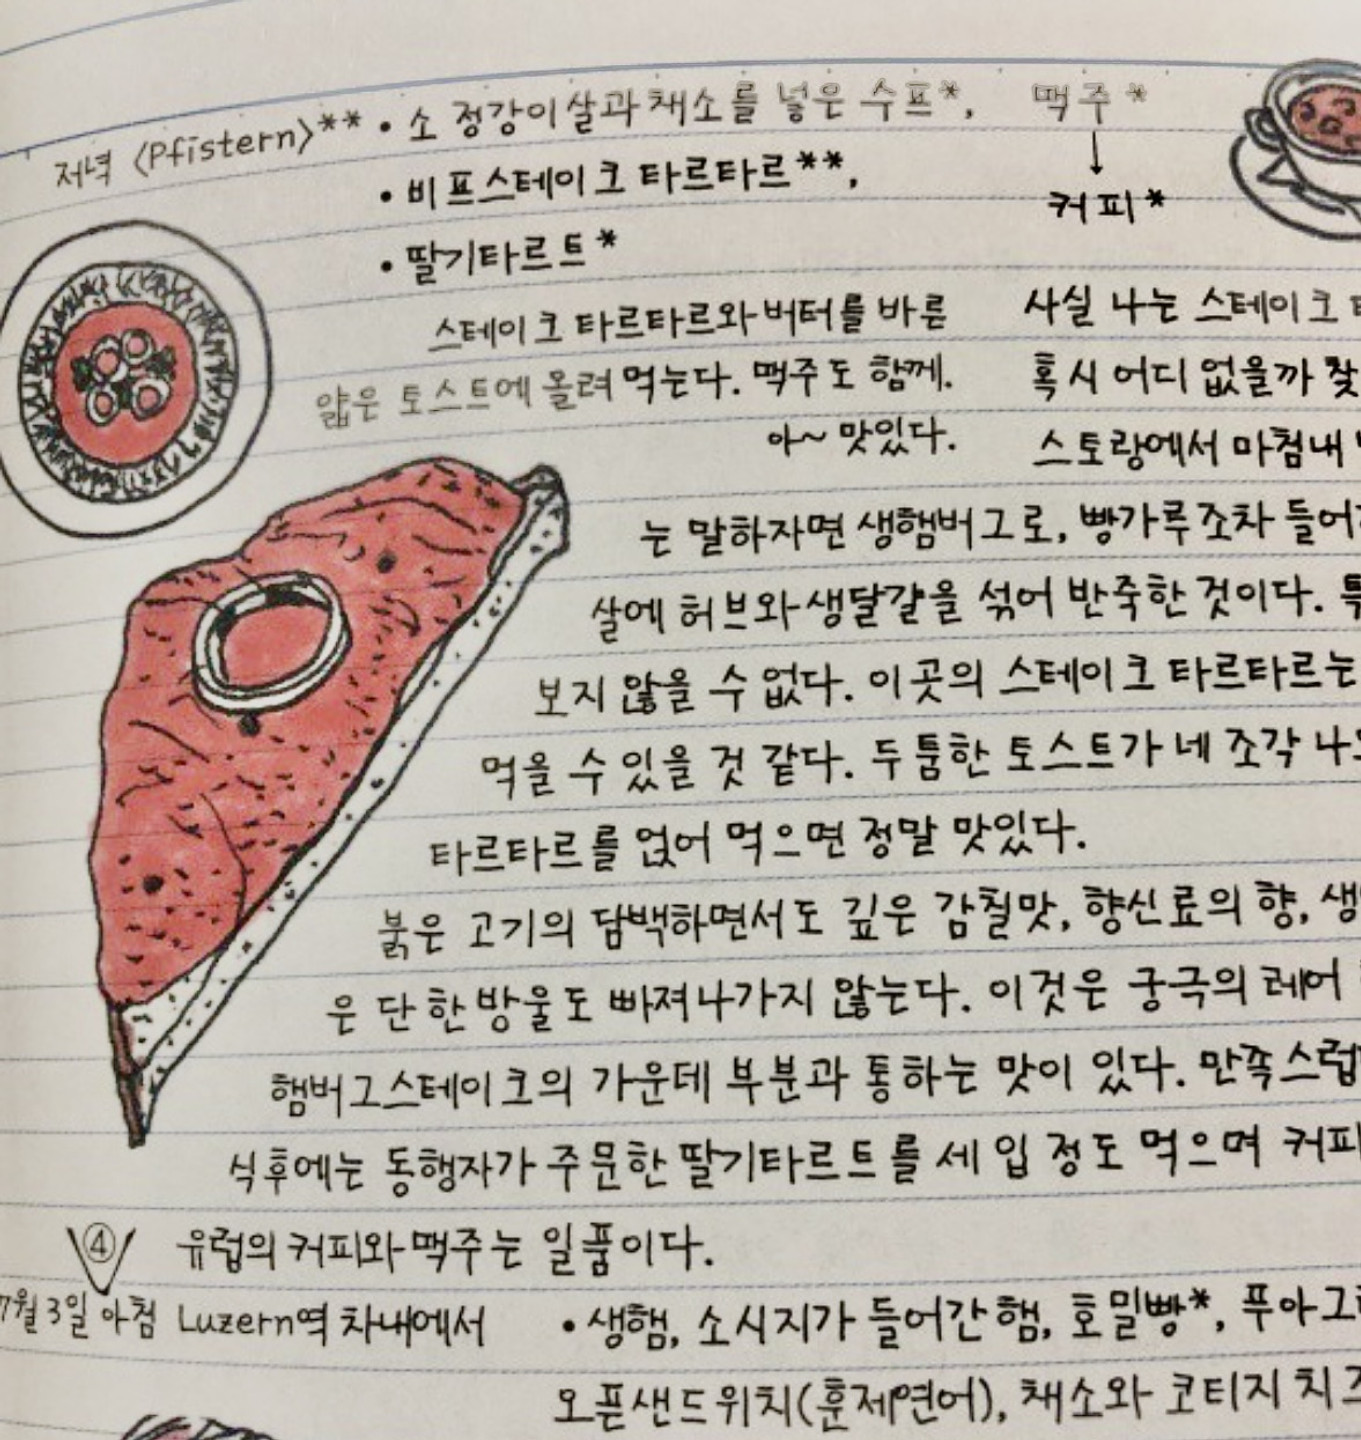 저녁 〈Pfistern〉** • 소 정강이살과 채소를 넣은 수프*, 맥주*
↓
• 비프스테이크 타르타르**, 커피*
• 딸기타르트*
스테이크 타르타르와 버터를 바른
얇은 토스트에 올려 먹는다. 맥주도 함께.
아~ 맛있다.
사실 나는 스테이크
혹시 어디 없을까 찾
스토랑에서 마침내
는 말하자면 생햄버그로, 빵가루조차 들어
살에 허브와 생달걀을 섞어 반죽한 것이다.
보지 않을 수 없다. 이곳의 스테이크 타르타르는
먹을 수 있을 것 같다. 두툼한 토스트가 네 조각
타르타르를 얹어 먹으면 정말 맛있다.
붉은 고기의 담백하면서도 깊은 감칠맛, 향신료의 향, 생
은 단 한 방울도 빠져나가지 않는다. 이것은 궁극의 레어
햄버그스테이크의 가운데 부분과 통하는 맛이 있다. 만족스럽
식후에는 동행자가 주문한 딸기타르트를 세 입 정도 먹으며 커피
④ 유럽의 커피와 맥주는 일품이다.
7월 3일 아침 Luzern역 차내에서 • 생햄, 소시지가 들어간 햄, 호밀빵*, 푸아그
오픈샌드위치(훈제연어), 채소와 코티지 치즈